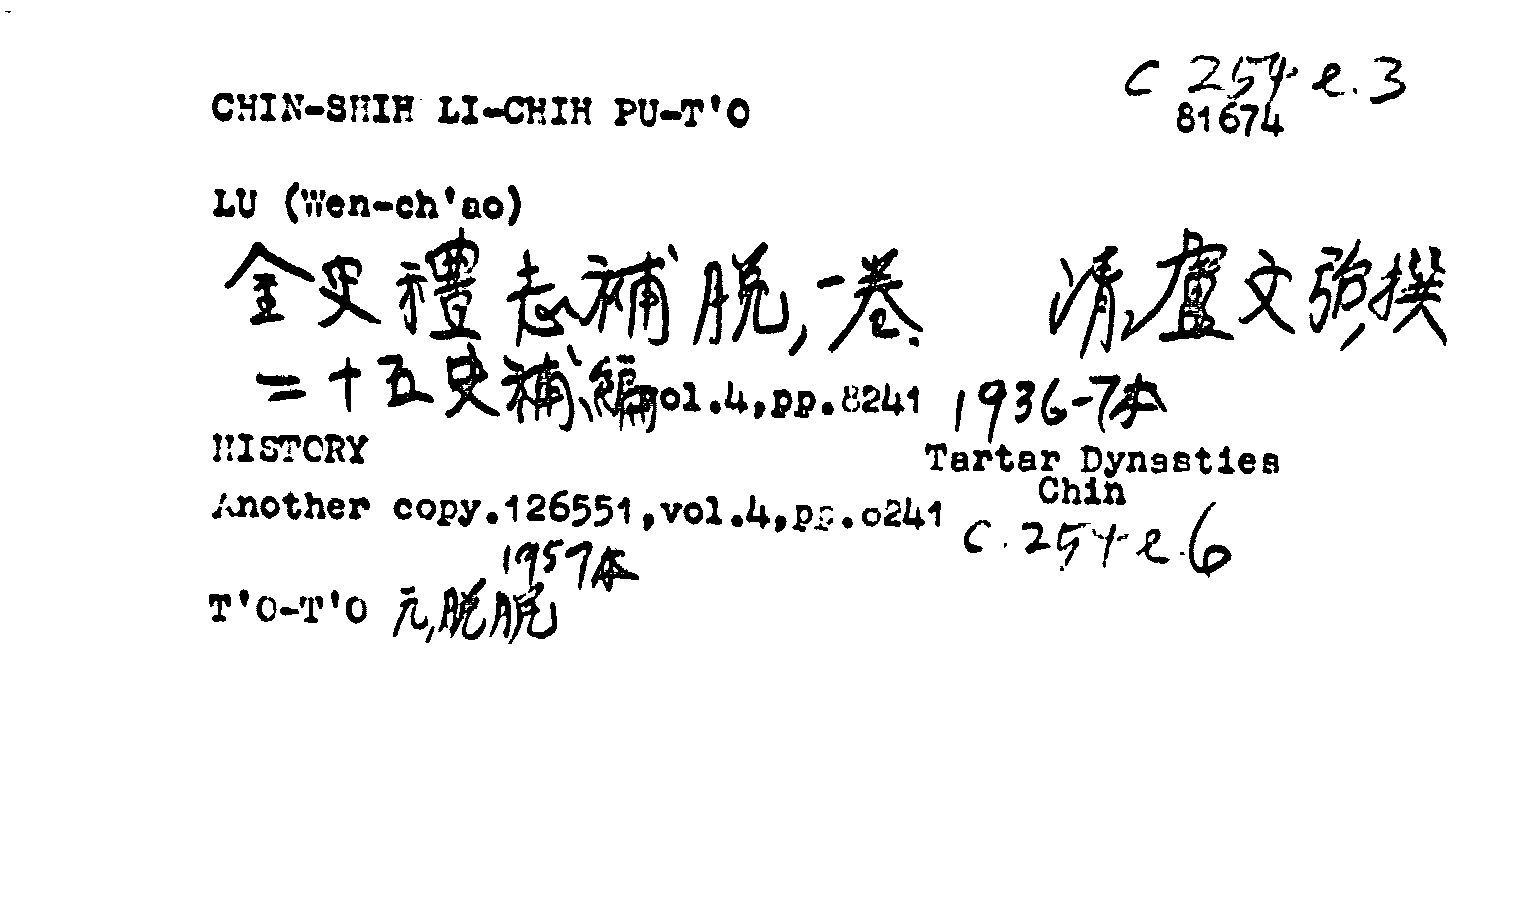 C 254. e. 3
CHIN-SHIH LI-CHIH PU-T'O
81674
LU (Wen-ch'ao)
金史禮志補脫,一卷. 清,盧文弨,撰
二十五史補編 vol.4,pp.8241 1936-7本
HISTORY Tartar Dynasties
Chin
Another copy.126551,vol.4,pp.8241 C. 254 e. 6
1957本
T'O-T'O 元,脫脫